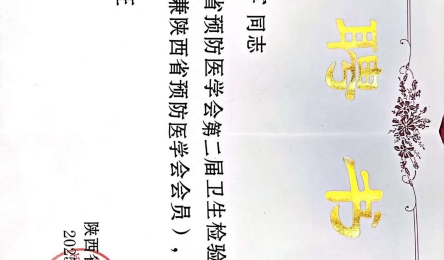 聘书
同志
省预防医学会第二届卫生检验
兼陕西省预防医学会会员），
陕西省
202